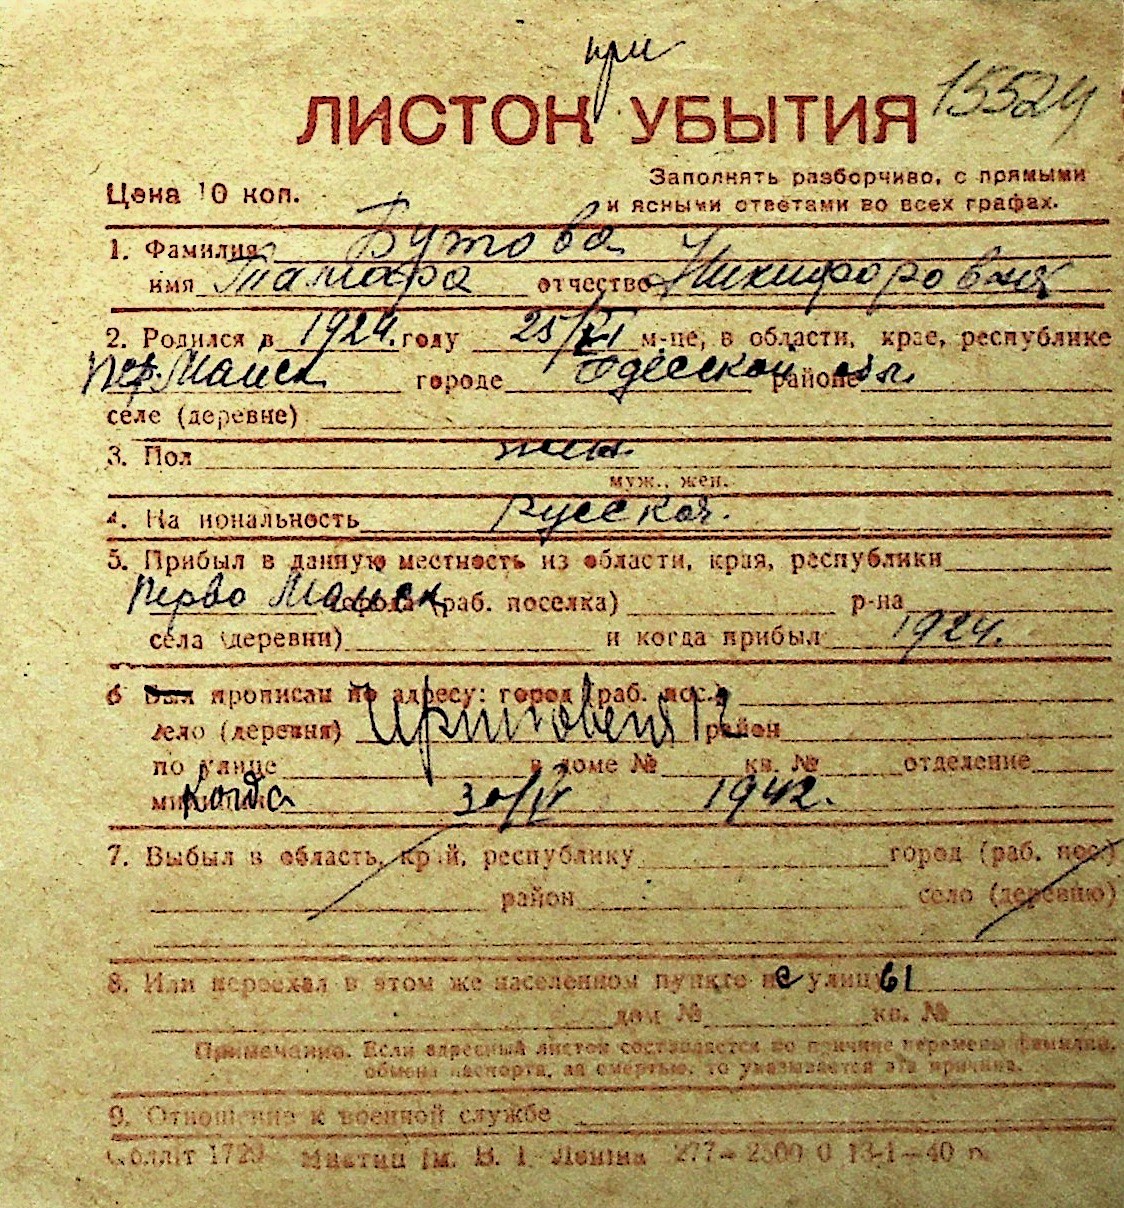 при
ЛИСТОК УБЫТИЯ 15524
Цена 10 коп. Заполнять разборчиво, с прямыми
и ясными ответами во всех графах.
1. Фамилия Бутова
имя Тамара отчество Никифоровна
2. Родился в 1924. году 25/VI м-це, в области, крае, республике
Пер.Майск городе Одесской районе обл.
селе (деревне)
3. Пол жен.
муж., жен.
4. На иональность Русская.
5. Прибыл в данную местность из области, края, республики
Перво Майск города (раб. поселка) р-на
села (деревни) и когда прибыл 1924.
6 Был прописан по адресу: город (раб. пос.)
село (деревня) 12 район
по улице в доме № кв. № отделение
милиции Когда 30/IV 1942.
7. Выбыл в область, край, республику город (раб. пос.)
район село (деревню)
8. Или переехал в этом же населенном пункте на улицу 61
дом № кв. №
Примечание. Если адресный листок составляется по причине перемены фамилии,
обмена паспорта, за смертью, то указывается эта причина.
9. Отношение к военной службе
Облліт 1729 Миспид Ім. В. І. Леніна 277—2500 0 13-1—40 р.